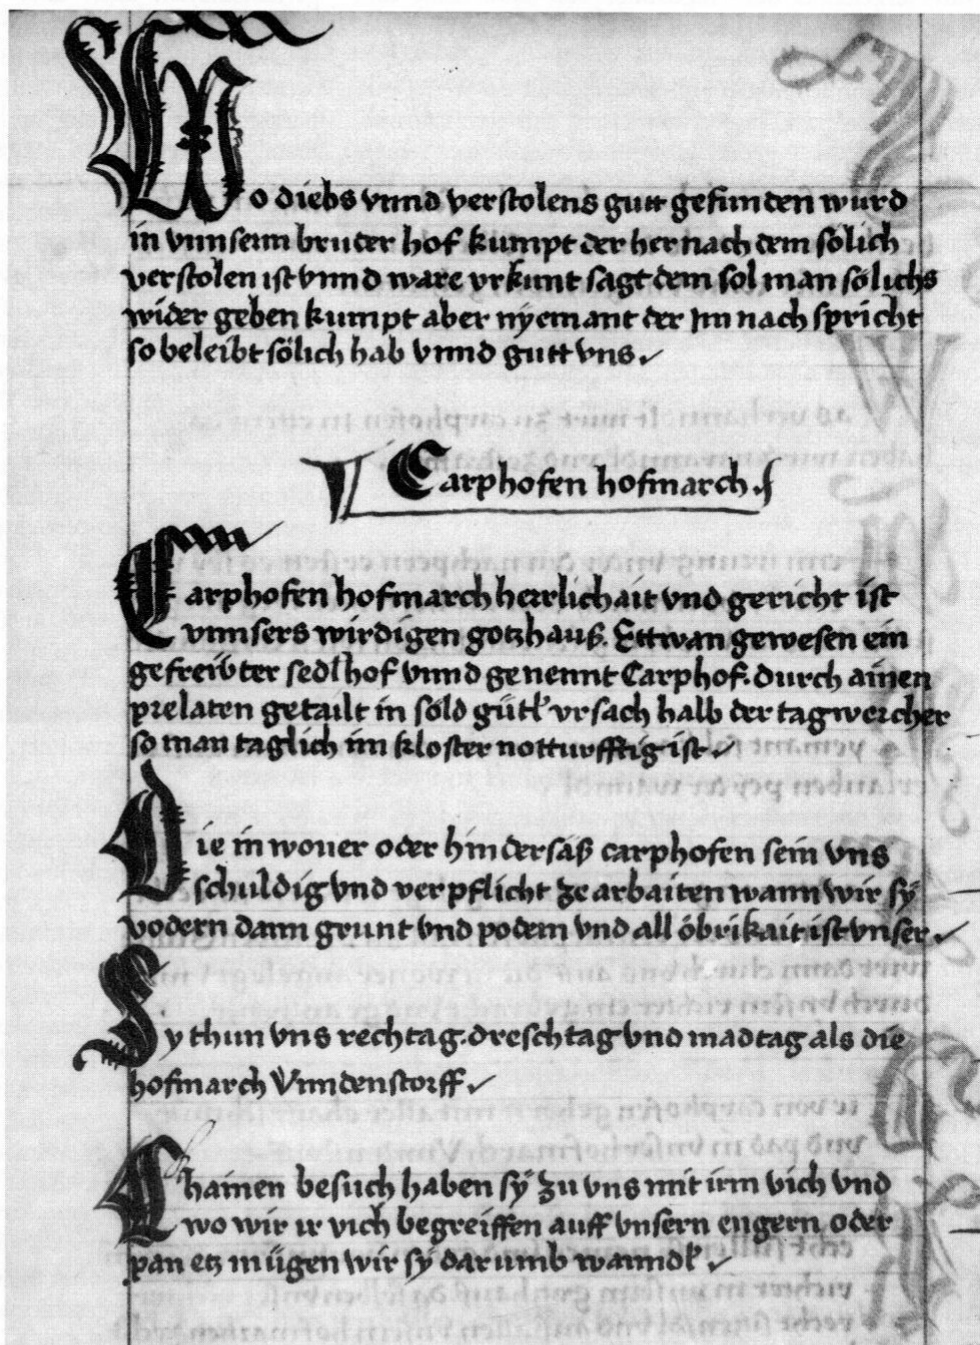 Wo diebs vnnd verstolens gutt gefunden wurd
in vnnserm bruder hof kumpt der her nach dem sölich
verstolen ist vnnd ware vrkunt sagt dem sol man sölichs
wider geben kumpt aber nyemant der Im nach spricht
so beleibt sölich hab vnnd gutt vns
Carphofen hofmarch
Carphofen hofmarch herrlichait vnd gericht ist
vnnsers wirdigen gotzhauß. Ettwan gewesen ein
gefreiter sedlhof vnnd genennt Carphof. durch ainen
prelaten getailt in söld gütl vrsach halb der tagwercher
so man taglich im kloster notturfftig ist
Die inwoner oder hindersäß carphofen sein vns
schuldig vnd verpflicht ze arbaiten wann wir sÿ
vodern dann grunt vnd podem vnd all öbrikait ist vnser
Sy thun vns rechtag. dreschtag vnd madtag als die
hofmarch Vnndenstorff
Chainen besuch haben sÿ zu vns mit irm vich vnd
wo wir ir vich begreiffen auff vnsern engern oder
panetz mügen wir sÿ darumb wanndl